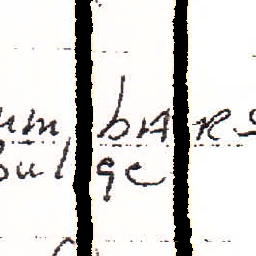 um, bars
bulge